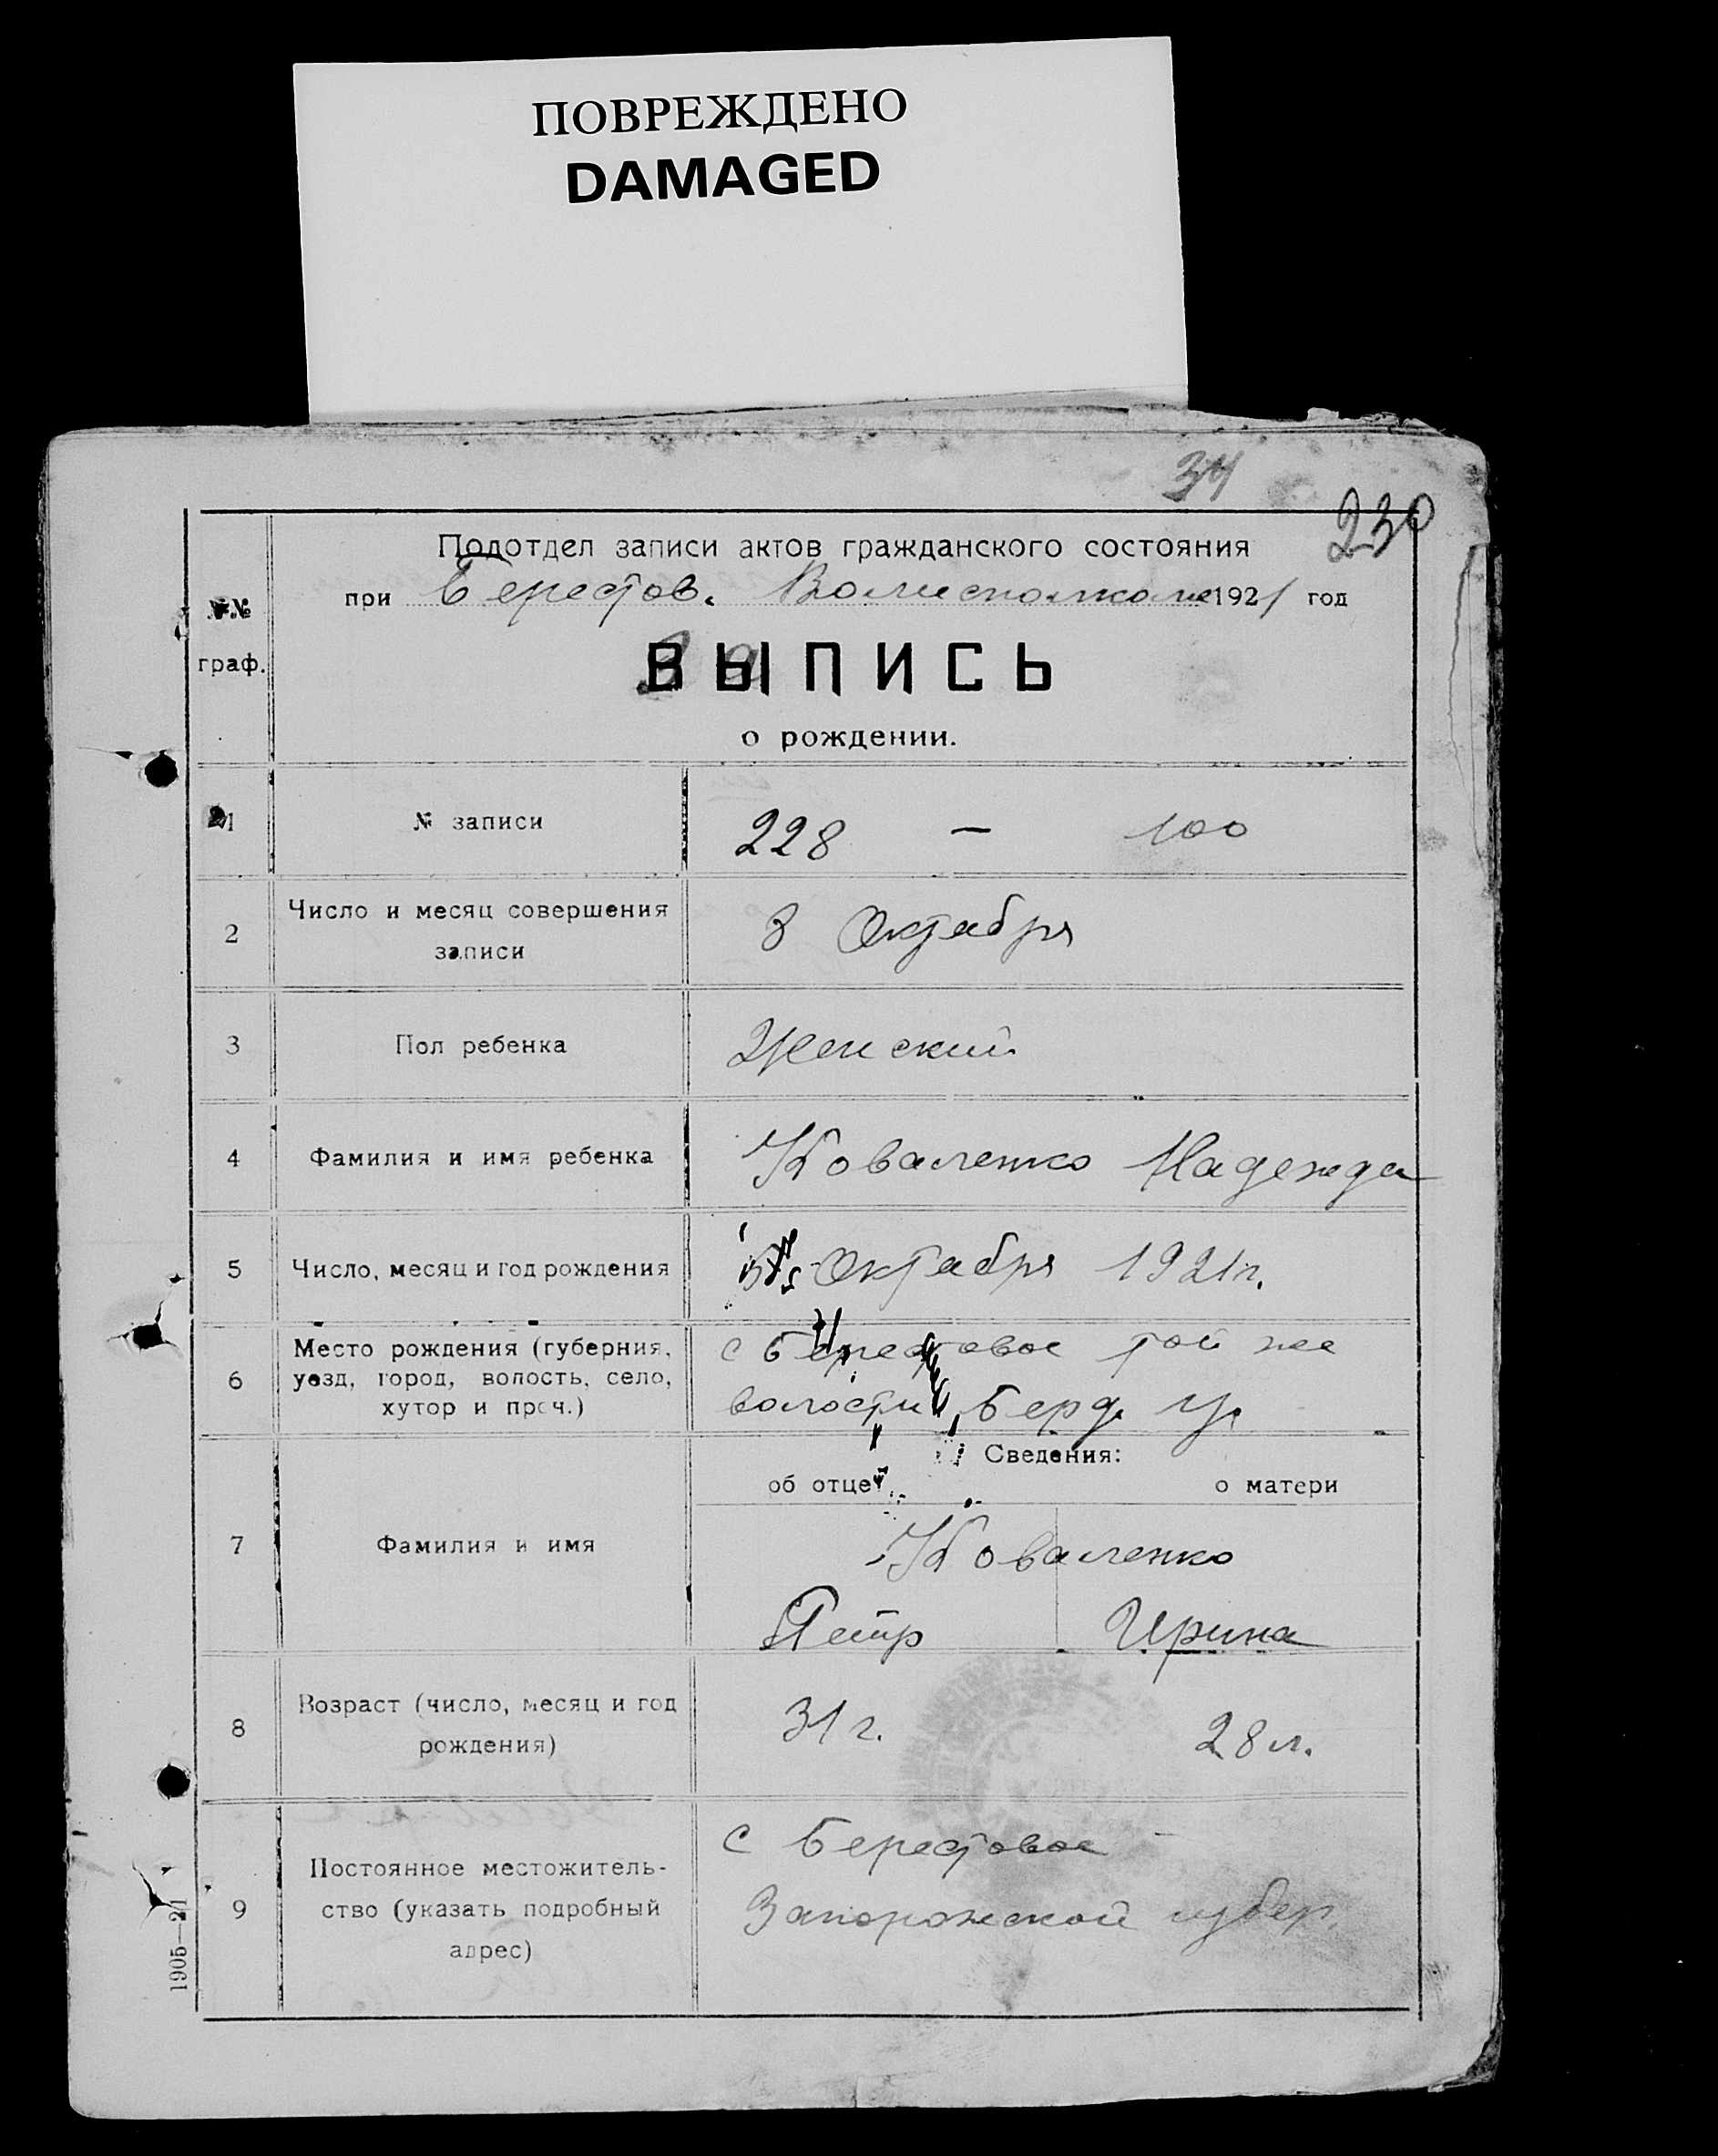 ПОВРЕЖДЕНО
DAMAGED
34
230
Подотдел записи актов гражданского состояния
при Берестов. Волисполкоме 1921 год
№№
граф.
ВЫПИСЬ
о рождении.
1 № записи 228 — 100
2 Число и месяц совершения
записи
8 Октября
3 Пол ребенка Женский
4 Фамилия и имя ребенка Коваленко Надежда
5 Число, месяц и год рождения Октября 1921 г.
6 Место рождения (губерния,
уезд, город, волость, село,
хутор и проч.)
с Берестовое той же
волости, Берд. у.
Сведения:
об отце о матери
7 Фамилия и имя Коваленко
Петр Ирина
8 Возраст (число, месяц и год
рождения)
31 г. 28 л.
9 Постоянное местожитель-
ство (указать подробный
адрес)
с Берестовое
Запорожской губер.
1905—21